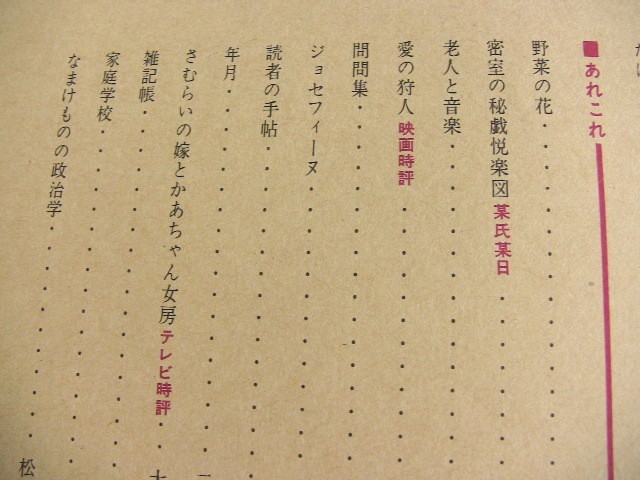 ■あれこれ
野菜の花
密室の秘戯悦楽図 某氏某日
老人と音楽
愛の狩人 映画時評
問問集
ジョセフィーヌ
読者の手帖
年月
さむらいの嫁とかあちゃん女房 テレビ時評
雑記帳
家庭学校
なまけものの政治学
松